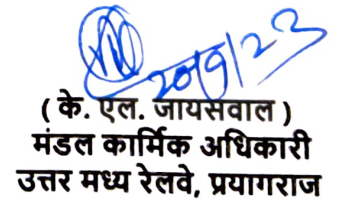 20/9/23
( के. एल. जायसवाल )
मंडल कार्मिक अधिकारी
उत्तर मध्य रेलवे, प्रयागराज